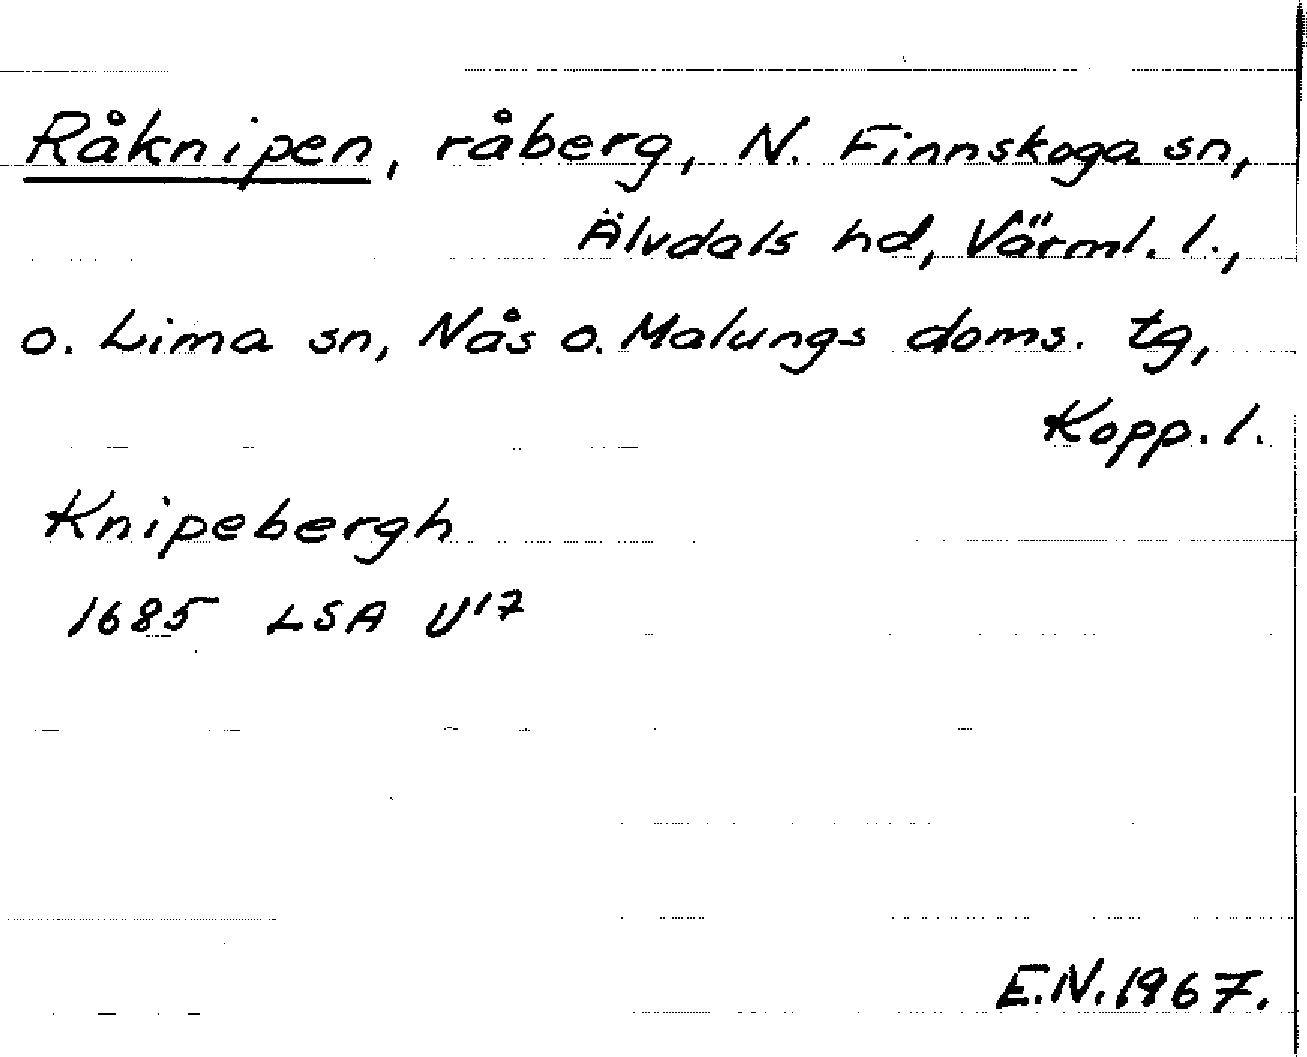 Råknipen, råberg, N. Finnskoga sn,
Älvdals hd, Värml. l.,
o. Lima sn, Nås o. Malungs doms. tg,
Kopp. l.
Knipebergh
1685 LSA U¹⁷
E.N. 1967.